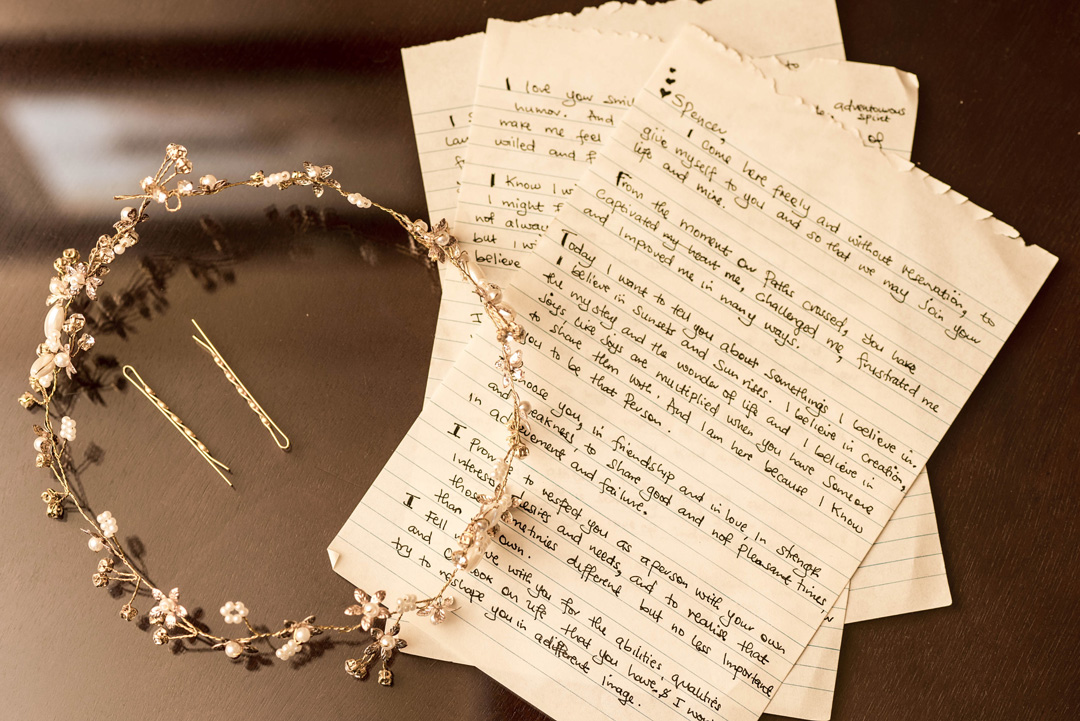 I love your
humor. And
make me feel
and
I Know I
I might
not always
but I
believe
I
to
adventurous
spirit
of
Spencer,
I come here freely and without reservation, to
give myself to you and so that we may join your
life and mine.
From the moment our paths crossed, you have
Captivated my heart me, challenged me, frustrated me
and improved me in many ways.
Today I want to tell you about somethings I believe in.
I believe in sunsets and sun rises. I believe in creation,
the mystery and the wonder of life and I believe in
joys, like joys are multiplied when you have someone
to share them with. And I am here because I know
you to be that person.
choose you, in friendship and in love, in strength
and weakness, to share good and not pleasant times,
in achievement and failure.
I to respect you as a person with your own
desires and needs, and to realise that
those sometimes different but no less important
than own.
I fell love with you for the abilities, qualities
and look on life that you have, & I
try to reshape you in a different image.